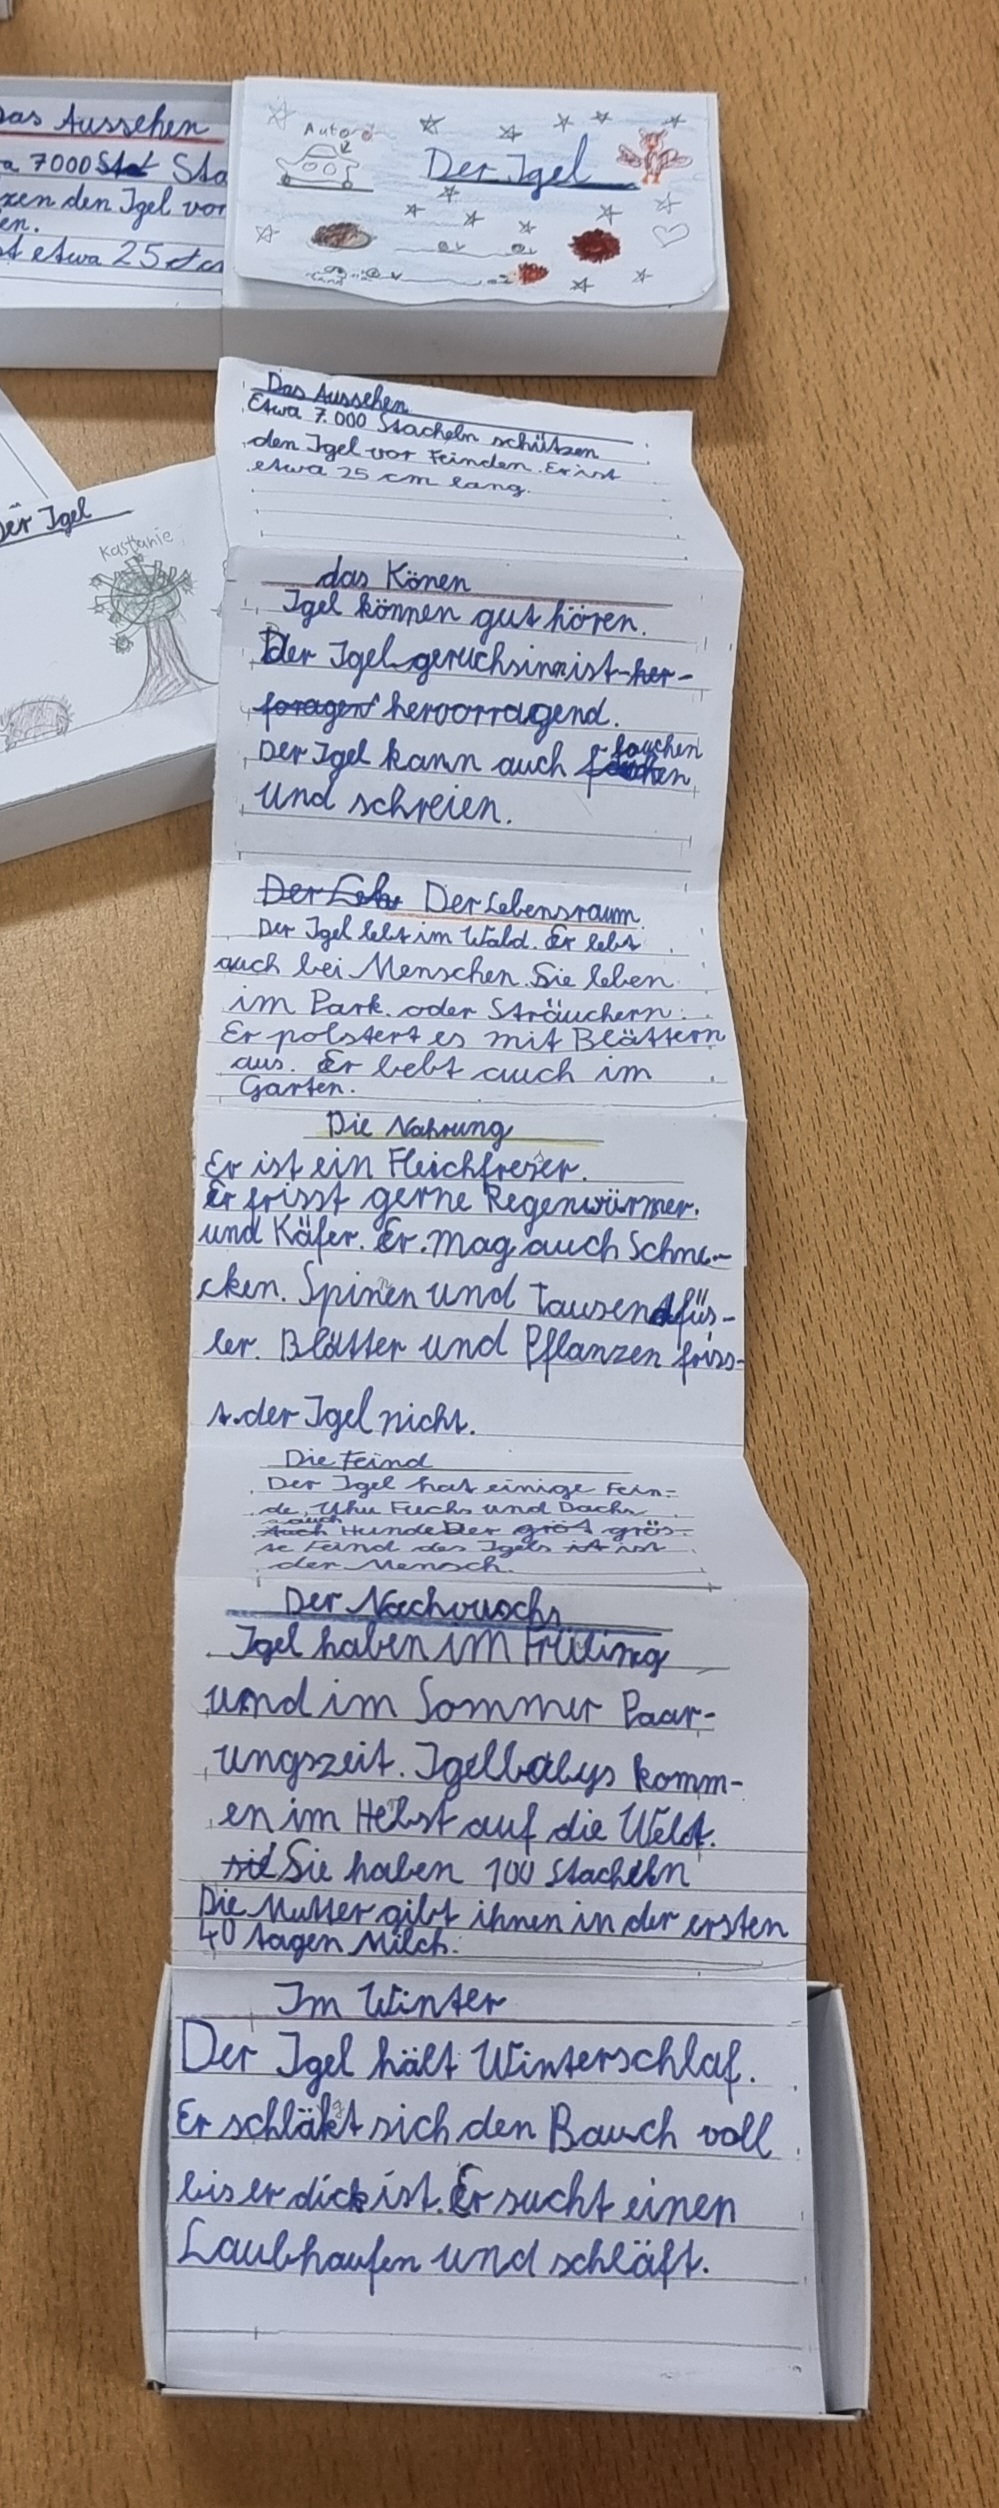 Das Aussehen
a 7000 Sta
zen den Igel vor
en.
st etwa 25 cm
Autor
Der Igel
Der Igel
Kastanie
Das Aussehen
Etwa 7.000 Stacheln schützen
den Igel vor Feinden. Er ist
etwa 25 cm lang.
das Könen
Igel können gut hören.
Der Igel geruchsinn ist her-
foragen hervorragend.
Der Igel kann auch fauchen
und schreien.
Der Leb Der Lebensraum
Der Igel lebt im Wald. Er lebt
auch bei Menschen. Sie leben
im Park oder Sträuchern.
Er polstert es mit Blättern
aus. Er lebt auch im
Garten.
Die Nahrung
Er ist ein Fleichfreser.
Er frisst gerne Regenwürmer.
und Käfer. Er mag auch Schne-
cken. Spinen und Tausendfüs-
ler. Blätter und Pflanzen friss-
t der Igel nicht.
Die Feind
Der Igel hat einige Fein-
de, Uhu Fuchs und Dachs
auch
Auch Hunde Der gröt grös-
se Feind des Igels ist ist
der Mensch.
Der Nachwuchs
Igel haben im Früling
und im Sommer Paar-
ungszeit. Igelbabys komm-
en im Hebst auf die Welt.
sie Sie haben 100 Stacheln
Die Mutter gibt ihnen in der ersten
40 tagen Milch.
Im Winter
Der Igel hält Winterschlaf.
Er schläkt sich den Bauch voll
bis er dick ist. Er sucht einen
Laubhaufen und schläft.